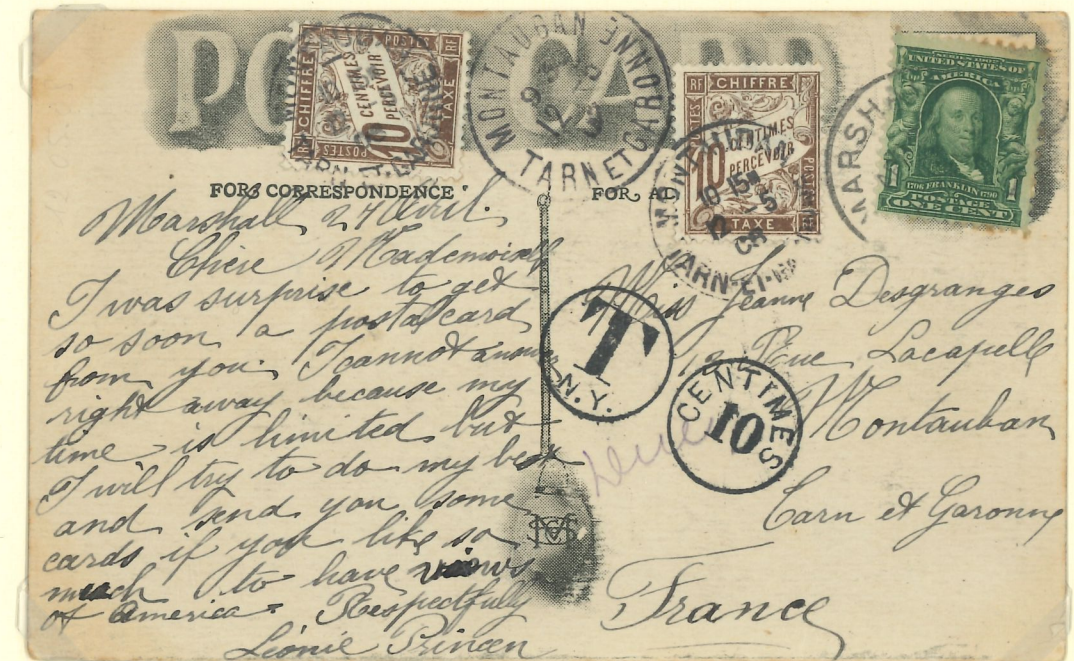 POST CARD
CHIFFRE
TAXE
POSTES
RF
10
CENTIMES
À PERCEVOIR
MONTAUBAN
TARN ET GARONNE
CHIFFRE
TAXE
RF
10
CENTIMES
À PERCEVOIR
MONTAUBAN
10 15
12 - 5
08
TARN-ET-
MARSHA
UNITED STATES OF
AMERICA
1706 FRANKLIN 1790
POSTAGE
1 1
ONE CENT
FOR CORRESPONDENCE
FOR AD
Marshall 24 Avril.
Chère Mademoiselle
I was surprise to get
so soon a postal card
from you. I cannot answer
right away because my
time is limited but
I will try to do my best
and send you some
cards if you like so
much to have views
of America. Respectfully
Léonie Princen
T
N.Y.
CENTIMES
10
Miss Jeanne Desgranges
Rue Lacapelle
Montauban
Tarn et Garonne
France